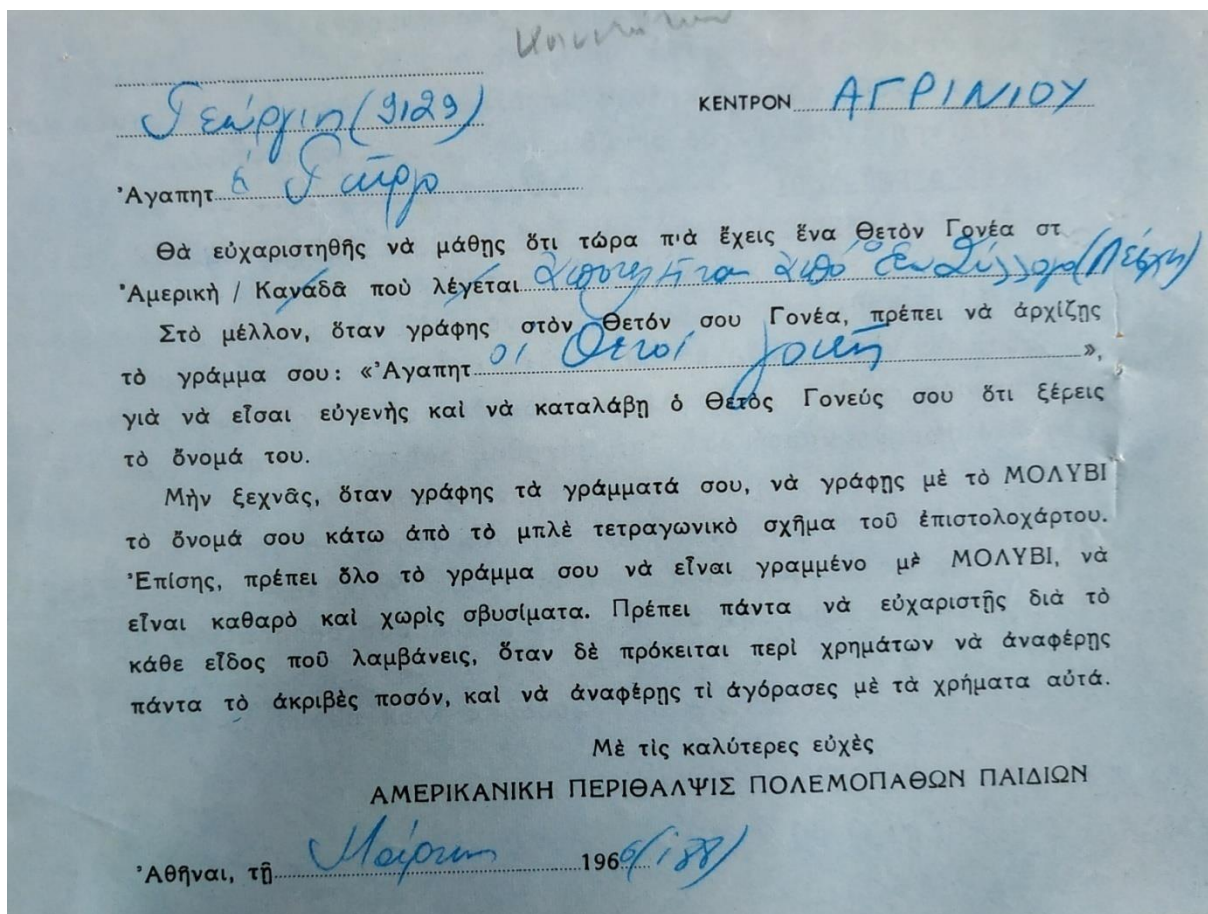 Γεώργιη (9129)
ΚΕΝΤΡΟΝ ΑΓΡΙΝΙΟΥ
Ἀγαπητὲ Γιῶργο
Θὰ εὐχαριστηθῆς νὰ μάθης ὅτι τώρα πιὰ ἔχεις ἕνα Θετὸν Γονέα στ
Ἀμερικὴ / Καναδᾶ ποὺ λέγεται (Λέσχη)
Στὸ μέλλον, ὅταν γράφης στὸν Θετόν σου Γονέα, πρέπει νὰ ἀρχίζης
τὸ γράμμα σου: «Ἀγαπητοι Θετοί γονεῖς»,
γιὰ νὰ εἶσαι εὐγενὴς καὶ νὰ καταλάβη ὁ Θετὸς Γονεύς σου ὅτι ξέρεις
τὸ ὄνομά του.
Μὴν ξεχνᾶς, ὅταν γράφης τὰ γράμματά σου, νὰ γράφῃς μὲ τὸ ΜΟΛΥΒΙ
τὸ ὄνομά σου κάτω ἀπὸ τὸ μπλὲ τετραγωνικὸ σχῆμα τοῦ ἐπιστολοχάρτου.
Ἐπίσης, πρέπει ὅλο τὸ γράμμα σου νὰ εἶναι γραμμένο μὲ ΜΟΛΥΒΙ, νὰ
εἶναι καθαρὸ καὶ χωρὶς σβυσίματα. Πρέπει πάντα νὰ εὐχαριστῇς διὰ τὸ
κάθε εἶδος ποῦ λαμβάνεις, ὅταν δὲ πρόκειται περὶ χρημάτων νὰ ἀναφέρῃς
πάντα τὸ ἀκριβὲς ποσόν, καὶ νὰ ἀναφέρῃς τὶ ἀγόρασες μὲ τὰ χρήματα αὐτά.
Μὲ τὶς καλύτερες εὐχὲς
ΑΜΕΡΙΚΑΝΙΚΗ ΠΕΡΙΘΑΛΨΙΣ ΠΟΛΕΜΟΠΑΘΩΝ ΠΑΙΔΙΩΝ
Ἀθῆναι, τῇ Μάρτιη 1966 (188)